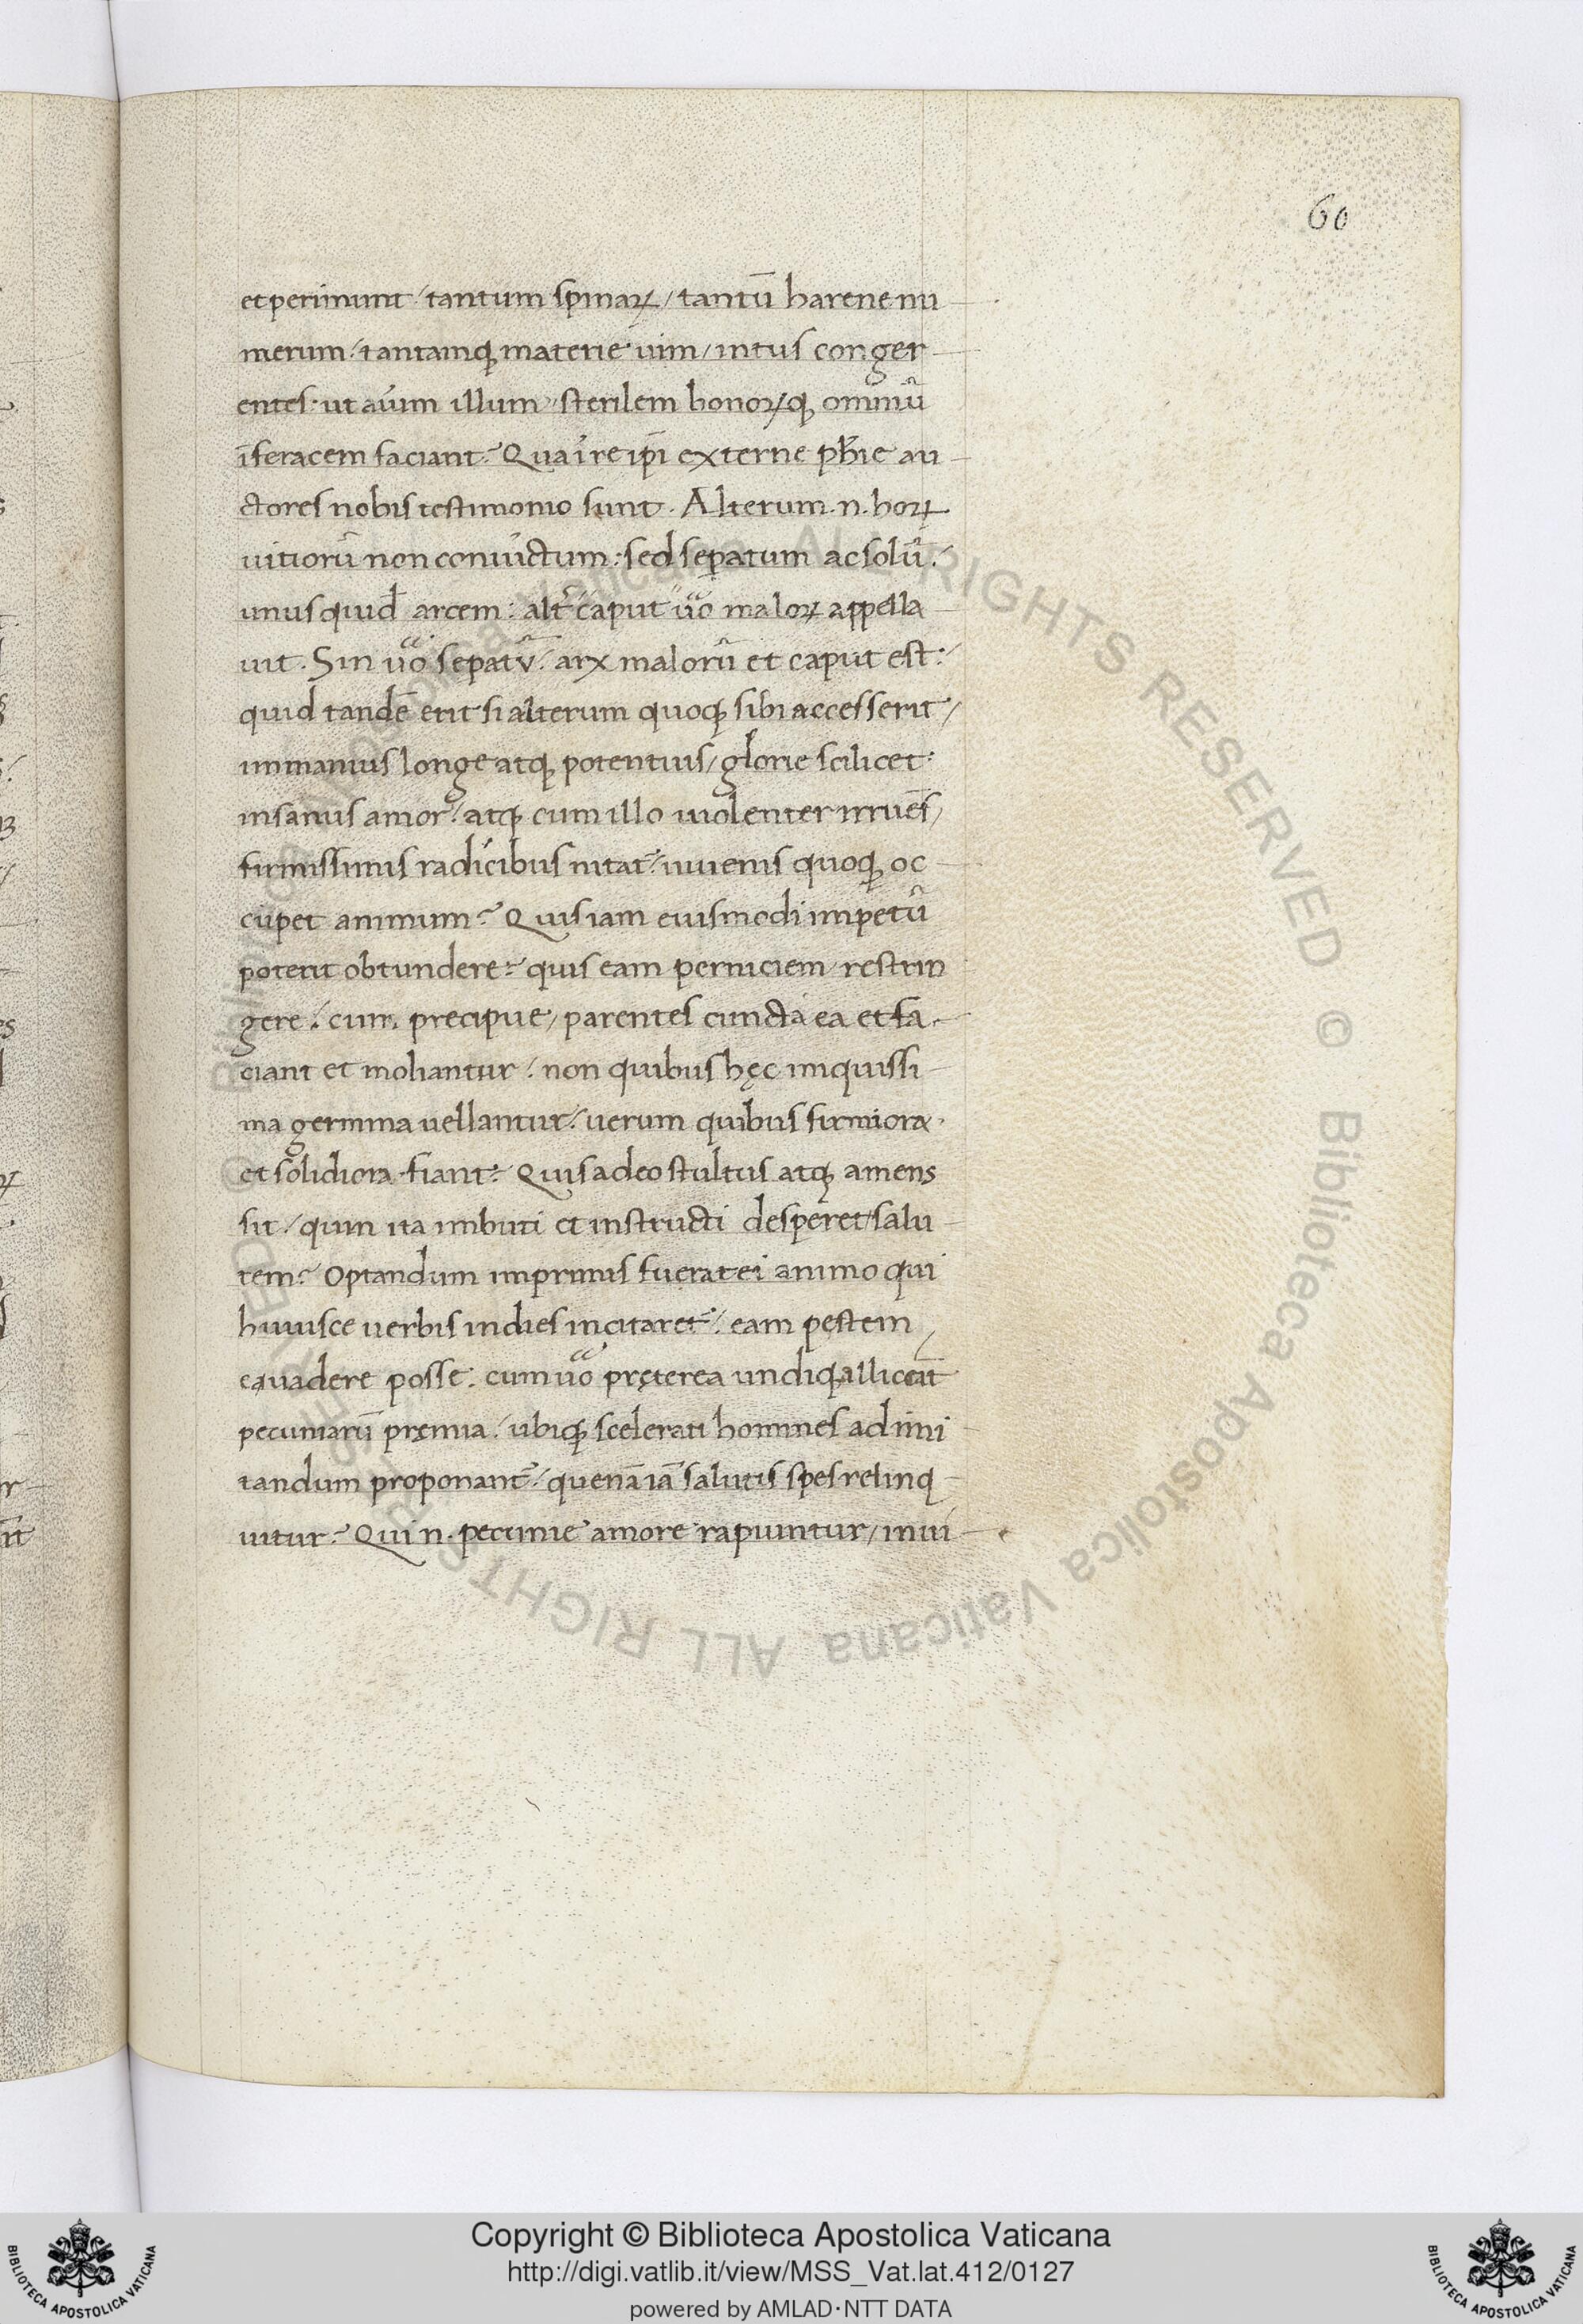 60
et perimunt / tantum spinaꝝ / tantū harene nu
merum / tantamqꝫ materie uim / intus conger
entes · ut aūm illum sterilem bonoꝝqꝫ omniū
īferacem faciant? Qua ī re ip̄i externe ph̄ie au
ctores nobis testimonio sunt. Alterum .n. hoꝝ
uitiorū non coniūctum : sed sepatum ac solū /
unus quid̄ arcem : alt̄ caput uo maloꝝ appella
uit. Sin uo sepatū / arx malorū et caput est /
quid tandē erit si alterum quoqꝫ sibi accesserit /
immanius longe atqꝫ potentius / glorie scilicet
insanus amor / atqꝫ cum illo uiolenter irruēs /
firmissimis radicibus nitat̄ / iuuenis quoqꝫ oc
cupet animum? Quis iam eiusmodi impetū
poterit obtundere? quis eam perniciem restrin
gere / cum precipue / parentes cuncta ea et fa
ciant et moliantur / non quibus hęc iniquissi
ma germina uellantur / uerum quibus firmiora
et solidiora fiant? Quis adeo stultus atqꝫ amens
sit / quin ita imbuti et instructi desperet salu
tem? Optandum imprimis fuerat ei animo qui
huiusce uerbis indies incitaret̄ / eam pestem
euadere posse : cum uo pręterea undiqꝫ alliceāt
pecuniarū pręmia / ubiqꝫ scelerati homines ad imi
tandum proponant̄ / quenā iā salutis spes relinq
uitur? Qui n. pecunie amore rapiuntur / inui
Copyright © Biblioteca Apostolica Vaticana
http://digi.vatlib.it/view/MSS_Vat.lat.412/0127
powered by AMLAD·NTT DATA
BIBLIOTECA APOSTOLICA VATICANA
BIBLIOTECA APOSTOLICA VATICANA
© Biblioteca Apostolica Vaticana ALL RIGHTS RESERVED © Biblioteca Apostolica Vaticana ALL RIGHTS RESERVED